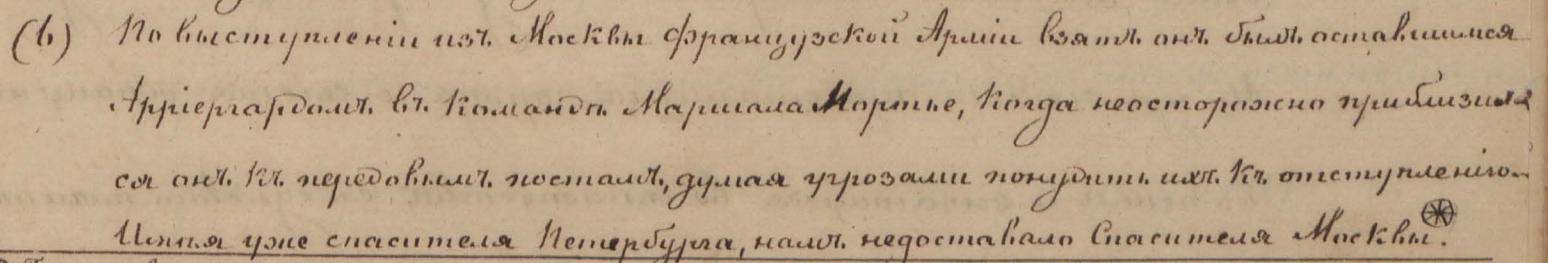 (b) По выступленіи изъ Москвы французской Арміи взятъ онъ былъ оставшимся
Арріергардомъ въ командѣ Маршала Мортье, когда неосторожно приблизил
ся онъ къ передовымъ постамъ, думая угрозами понудить ихъ къ отступленію.
Имѣя уже спасителя Петербурга, намъ недоставало Спасителя Москвы.